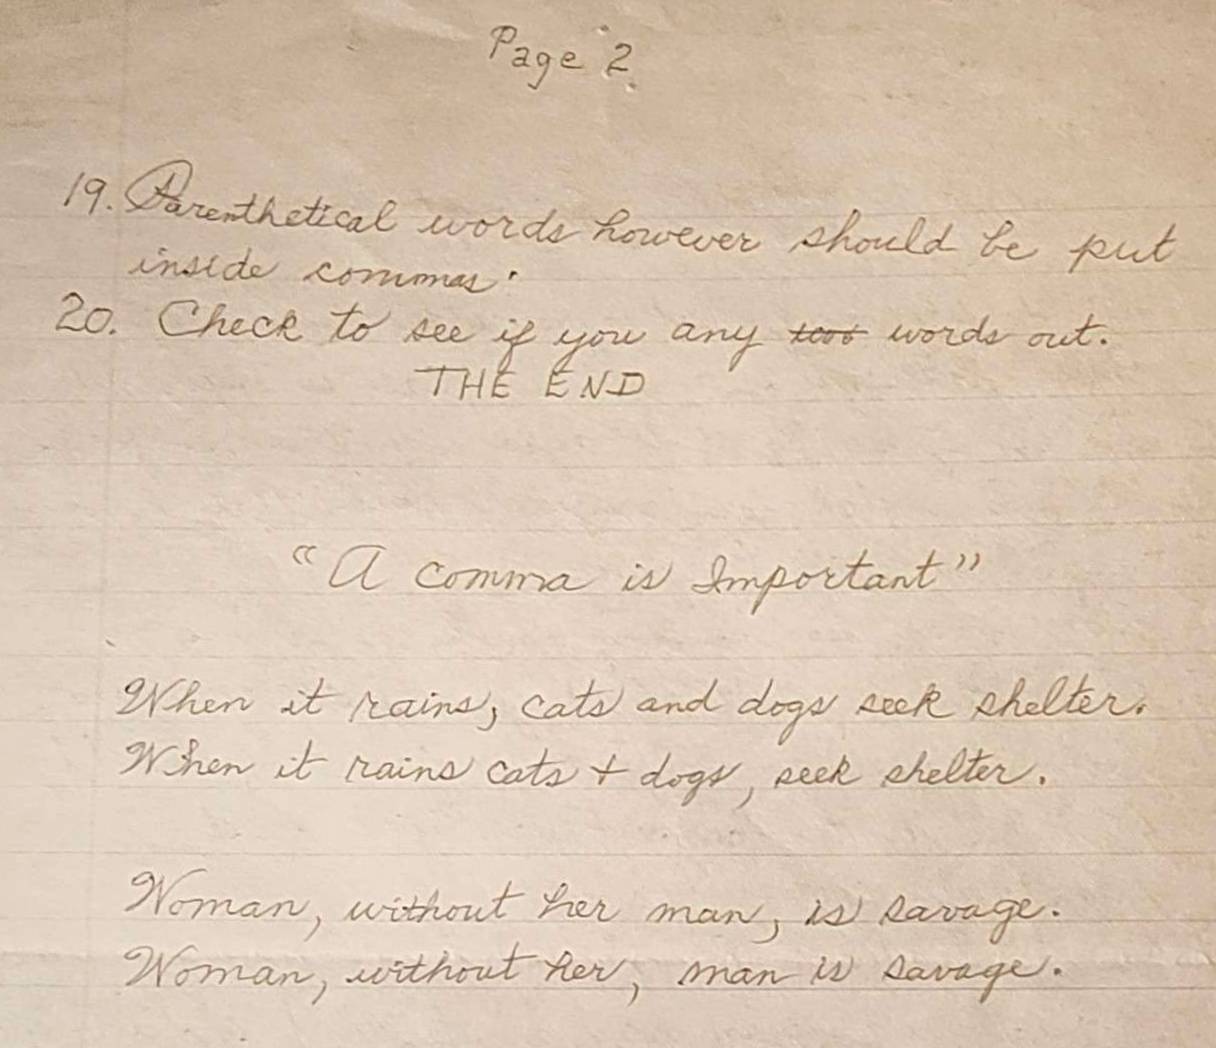 Page 2
19. Parenthetical words however should be put
inside commas.
20. Check to see if you any words out.
THE END
"A comma is Important"
When it rains, cats and dogs seek shelter.
When it rains cats + dogs, seek shelter.
Woman, without her man, is savage.
Woman, without her, man is savage.